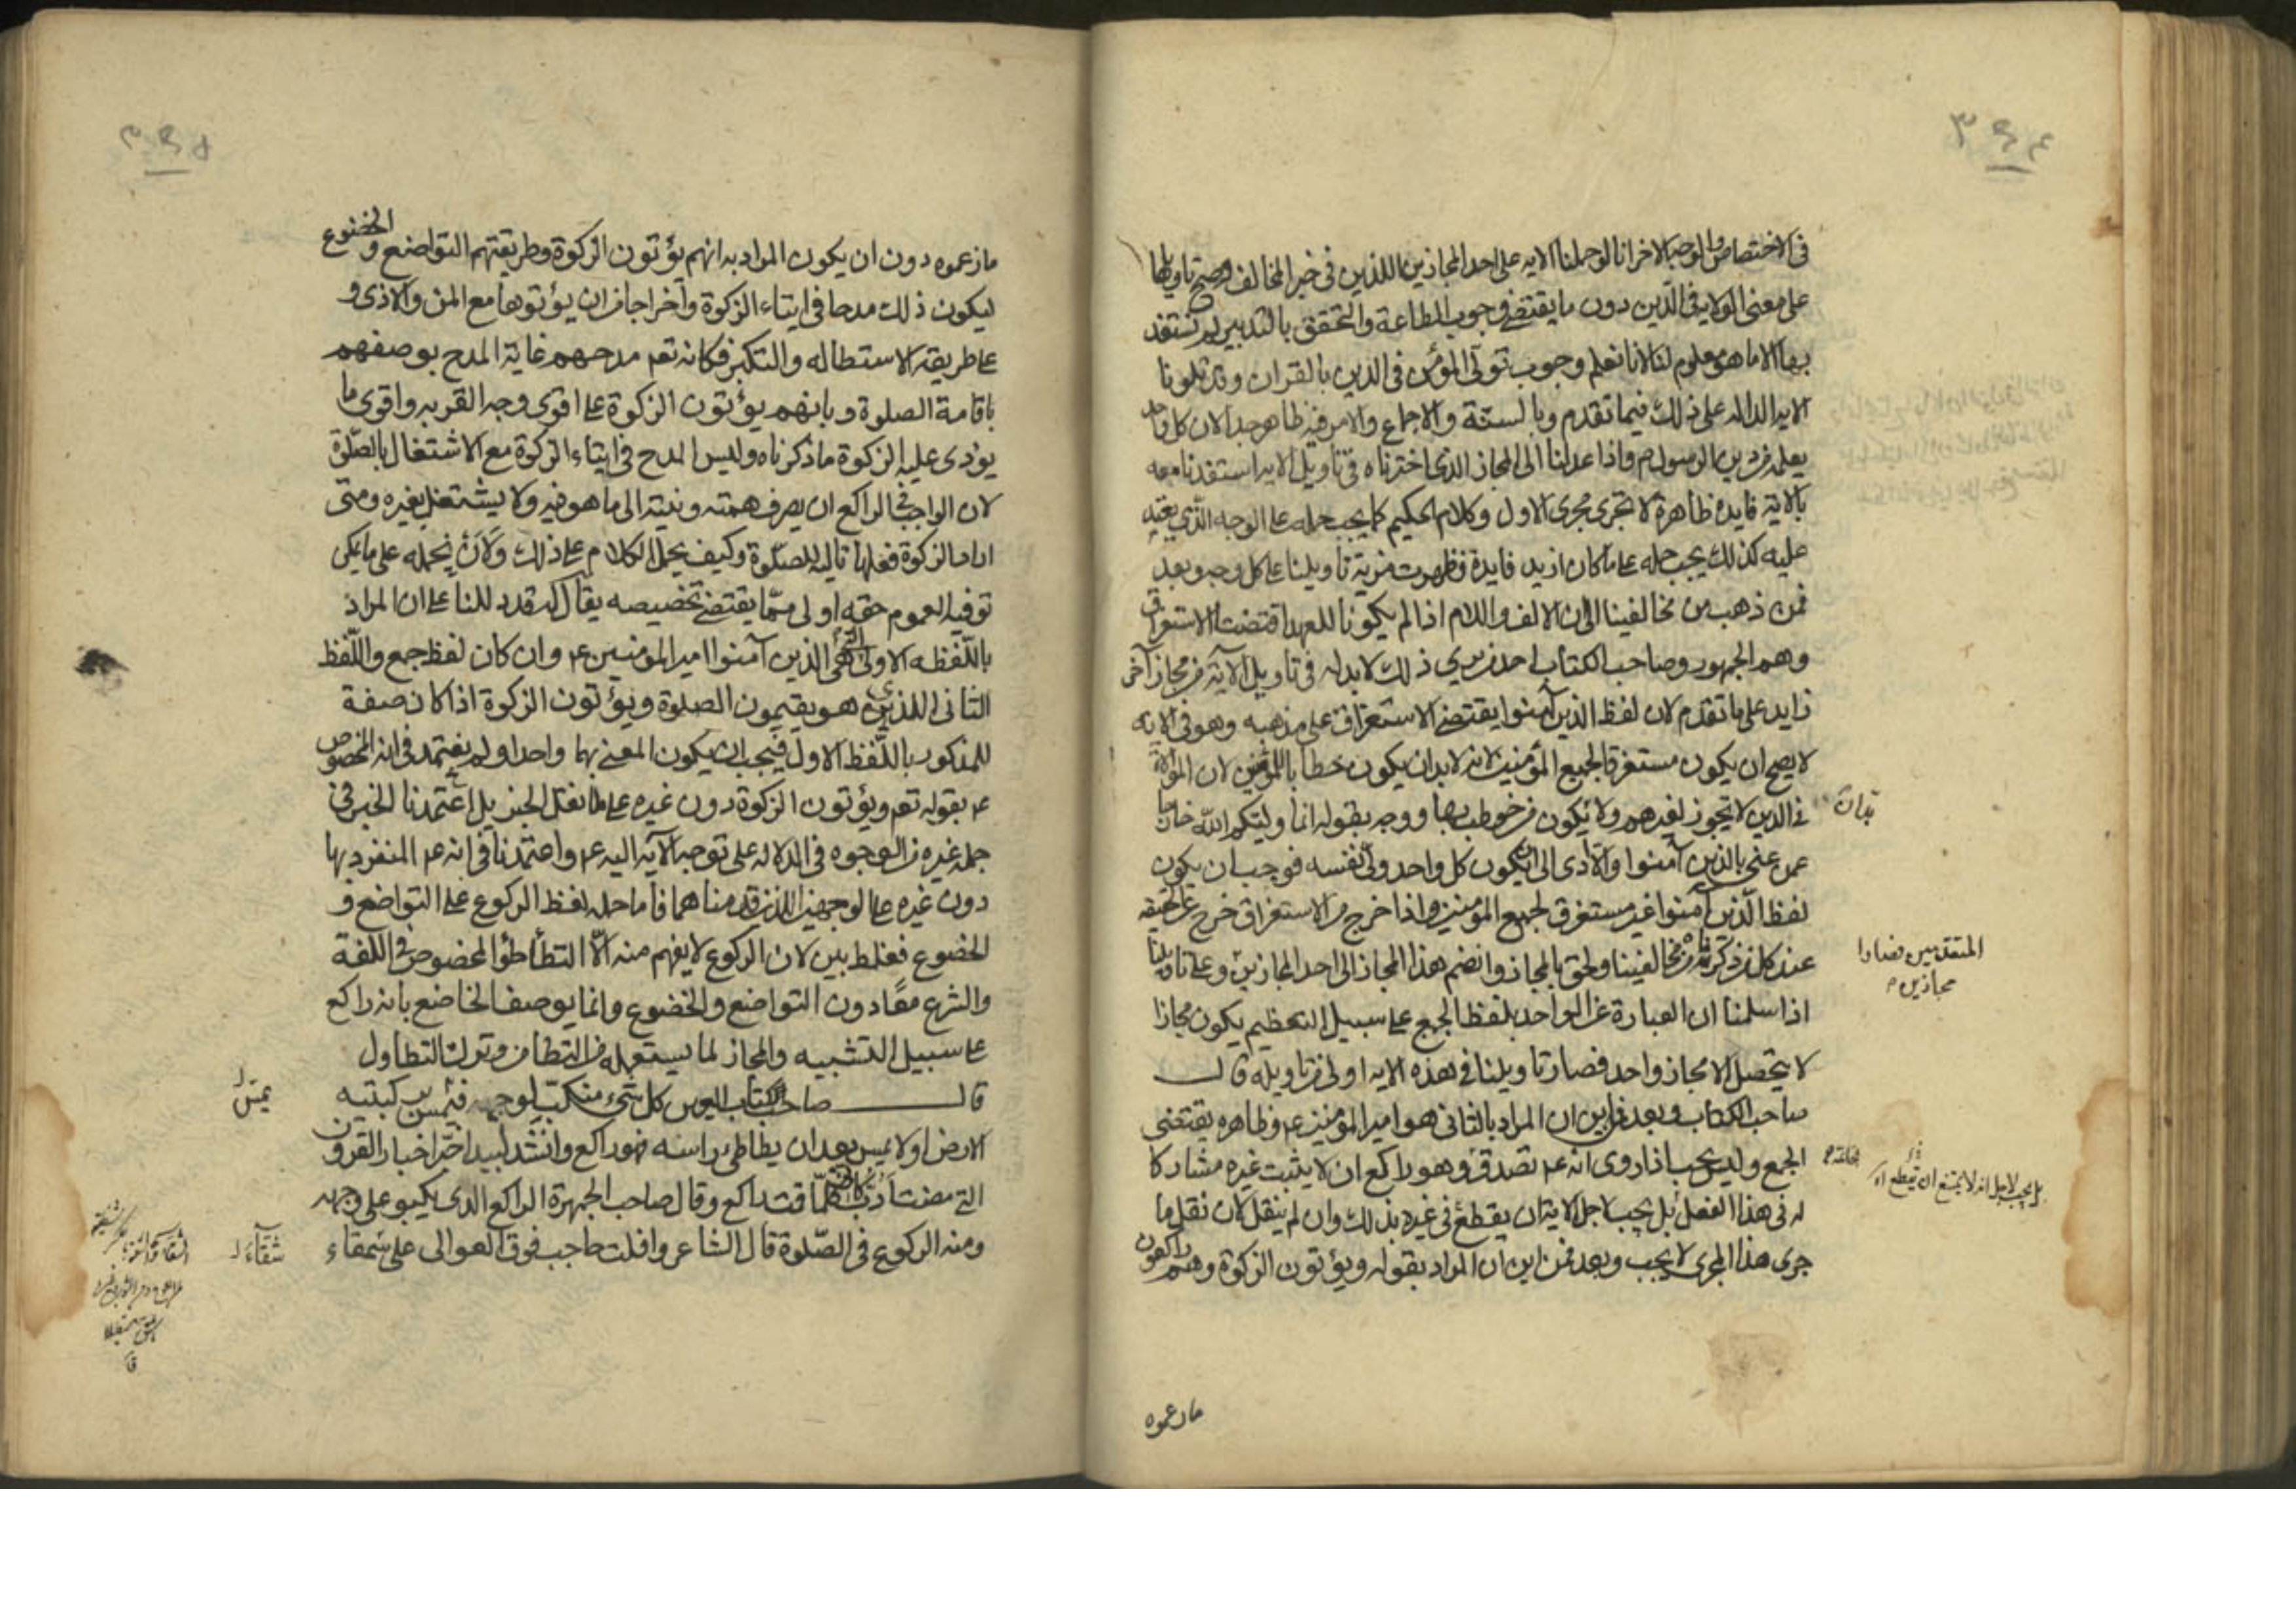 ٣٩٤
في الاختصاص والوجه الاخر انا لو حملنا الايه على احد المجازين اللذين في خبر المخالف وصح تاويلها
على معنى الولاية في الدين دون ما يقتضي وجوب الطاعة والتحقق بالتدبير لم نستفد
بها الا ما هو معلوم لنا لانا نعلم وجوب تولى المؤمن في الدين بالقران وقد تلونا
الايه الداله على ذلك فيما تقدم وبالسنّة والاجماع والامر فيه ظاهر جدا لان كل واحد
يعلمه من دين الرسول ص فاذا عدلنا الى المجاز الذي اخترناه في تاويل الايه استفدنا معه
بالاية فايده ظاهرة لا تجرى مجرى الاول وكلام الحكيم كما يجب حمله على الوجه الذي يفيد
عليه كذلك يجب حمله على ما كان ازيد فايدة فظهرت مزية تاويلنا على كل وجه وبعد
فمن ذهب من مخالفينا الى ان الالف واللام اذا لم يكونا للعهد اقتضتا الاستغراق
وهم الجمهور وصاحب الكتاب احد من يرى ذلك لا بد له في تاويل الآية من مجاز آخر
زايد على ما تقدم لان لفظ الذين آمنوا يقتضي الاستغراق على مذهبه وهو في الايه
لا يصح ان يكون مستغرقا لجميع المؤمنين لانه لا بد ان يكون خطابا للمؤمنين لان الموالاة
في الدين لا تجوز لغيرهم ولا يكون من خوطب بها ووجه بقوله انما وليكم الله خارجا
عمن عنى بالذين آمنوا والا ادى الى ان يكون كل واحد ولى نفسه فوجب ان يكون
لفظ الذين آمنوا غير مستغرق لجميع المؤمنين واذا خرج من الاستغراق خرج عن الحقيقه
عند كل من ذكرناه من مخالفينا ولحق بالمجاز وانضم هذا المجاز الى احد المجازين وعلى تاويلنا
المتقدمين فصارا
مجازين
اذا سلمنا ان العبارة عن الواحد بلفظ الجمع على سبيل التعظيم يكون مجازا
لا يتحصل الا مجاز واحد فصار تاويلنا في هذه الايه اولى من تاويله قال
صاحب الكتاب وبعد فمن اين ان المراد بالثاني هو امير المؤمنين ع وظاهره يقتضى
الجمع وليس يجب اذا روى انه ع تصدق وهو راكع ان لا يثبت غيره مشاركا
بل يجب لاجل انه لا يمتنع ان يقطع
له في هذا الفعل بل يجب لاجل الاية ان يقطع في غيره بذلك وان لم ينقل لان نقل ما
جرى هذا المجرى لا يجب وبعد فمن اين ان المراد بقوله ويؤتون الزكوة وهم راكعون
مازعموه
٣٩٥
مازعموه دون ان يكون المراد به انهم يؤتون الزكوة وطريقتهم التواضع والخضوع
ليكون ذلك مدحا في ايتاء الزكوة واخراجا من ان يؤتوها مع المن والاذى و
على طريقة الاستطاله والتكبر فكانه تعم مدحهم غاية المدح بوصفهم
باقامة الصلوة وبانهم يؤتون الزكوة على اقوى وجه القربه واقوى ما
يؤدى عليه الزكوة ما ذكرناه وليس المدح في ايتاء الزكوة مع الاشتغال بالصّلوة
لان الواجب في الراكع ان يصرف همته ونيته الى ما هو فيه ولا يشتغل بغيره ومتى
اراد الزكوة فعلها تاليه للصلوة وكيف يحمل الكلام على ذلك ولان نحمله على ما يمكن
توفيه العموم حقه اولى ممّا يقتضي تخصيصه يقال له قد دللنا على ان المراد
باللفظه الاولى التي هي الذين آمنوا امير المؤمنين ع وان كان لفظ جمع واللّفظ
الثاني الذي هو يقيمون الصلوة ويؤتون الزكوة اذا كان صفة
للمذكور باللّفظ الاول فيجب ان يكون المعنى بهما واحدا ولم نعتمد في انه المخصوص
ع بقوله تعم ويؤتون الزكوة دون غيره على ما نقل الخبر بل اعتمدنا الخبر في
جمله غيره من الوجوه في الدلاله على توجه الآيه اليه ع واعتمدنا في انه ع المنفرد بها
دون غيره على الوجهين اللذين قدمناهما فاما حمله لفظ الركوع على التواضع و
الخضوع فغلط بين لان الركوع لا يفهم منه الّا التطأطؤ المخصوص في اللغة
والشرع معًا دون التواضع والخضوع وانما يوصف الخاضع بانه راكع
على سبيل التشبيه والمجاز لما يستعمله من التطامن وترك التطاول
قال صاحب كتاب العين كل شيء ينكبّ لوجهه فيمس ركبتيه
الارض او لا يمس بعد ان يطاطئ راسه فهو راكع وانشد لبيد اخبّر اخبار القرون
التي مضت ادبّ كانى كلّما قمت راكع وقال صاحب الجمهرة الراكع الذى يكبو على وجهه
ومنه الركوع في الصّلوة قال الشاعر وافلت حاجب فوق العوالى على شمقاء
شقّآء